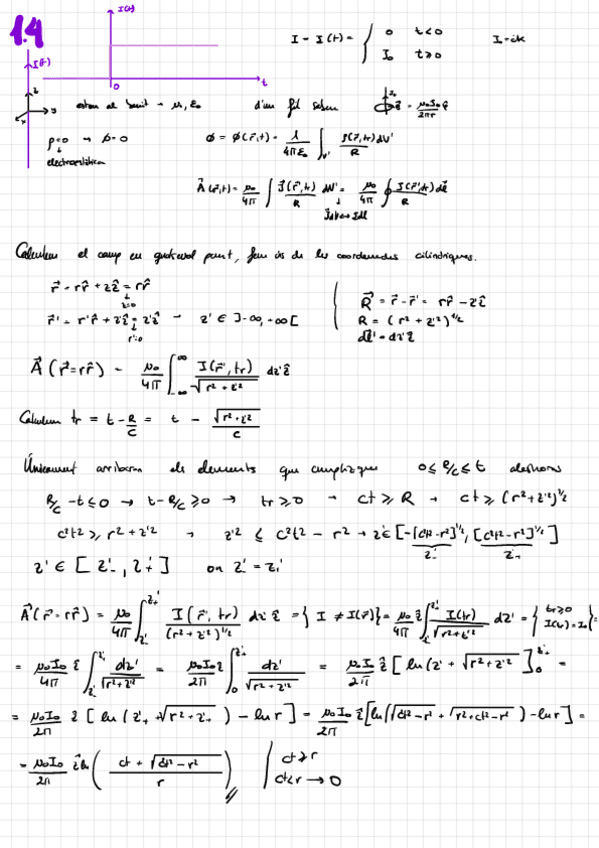 1.4
I(t)
I(t)
t
0
z
y
x
I = I(t) = { 0 t<0
I₀ t≥0
I = ctk
estem al buit → μ₀, ε₀ d'un fil sabem = μ₀I₀/2πr
ρ=0 → ϕ=0 ϕ = ϕ(r⃗,t) = 1/4πε₀ ∫_V' ρ(r⃗',tr)dV'/R
electrostàtica
A⃗(r⃗,t) = μ₀/4π ∫ J⃗(r⃗',tr)/R dV' = μ₀/4π ∮ I(r⃗',tr)dl⃗/R
Calculem el camp en qualsevol punt, fem ús de les coordenades cilíndriques.
r⃗ = rr̂ + zẑ = rr̂
z=0
r⃗' = r'r̂ + z'ẑ = z'ẑ → z' ∈ ]-∞, +∞[
r'=0
R⃗ = r⃗ - r⃗' = rr̂ - z'ẑ
R = (r² + z'²)^1/2
dl⃗' = dz'ẑ
A⃗(r⃗=rr̂) = μ₀/4π ∫_-∞^∞ I(r⃗',tr)/√(r²+z'²) dz'ẑ
Calculem tr = t - R/c = t - √(r²+z'²)/c
Únicament arribaran els elements que cumpleixquen 0 ≤ R/c ≤ t aleshores
R/c - t ≤ 0 → t - R/c ≥ 0 → tr ≥ 0 → ct ≥ R → ct ≥ (r²+z'²)^1/2
c²t² ≥ r² + z'² → z'² ≤ c²t² - r² → z' ∈ [-[c²t²-r²]^1/2, [c²t²-r²]^1/2]
z'₋ z'₊
z' ∈ [z'₋, z'₊] on
A⃗(r⃗=rr̂) = μ₀/4π ∫_z'₋^z'₊ I(r⃗',tr)/(r²+z'²)^1/2 dz' ẑ = {I ≠ I(r⃗')} = μ₀/4π ẑ ∫_z'₋^z'₊ I(tr)/√(r²+z'²) dz' = { tr≥0
I(tr)=I₀ } =
= μ₀I₀/4π ẑ ∫_z'₋^z'₊ dz'/√(r²+z'²) = μ₀I₀/2π ẑ ∫_0^z'₊ dz'/√(r²+z'²) = μ₀I₀/2π ẑ [ln(z' + √(r²+z'²))]_0^z'₊ =
= μ₀I₀/2π ẑ [ln(z'₊ + √(r²+z'₊²)) - ln r] = μ₀I₀/2π ẑ [ln(√(c²t²-r²) + √(r²+c²t²-r²)) - ln r] =
= μ₀I₀/2π ẑ ln( (ct + √(c²t²-r²))/r ) ct≥r
ct<r → 0